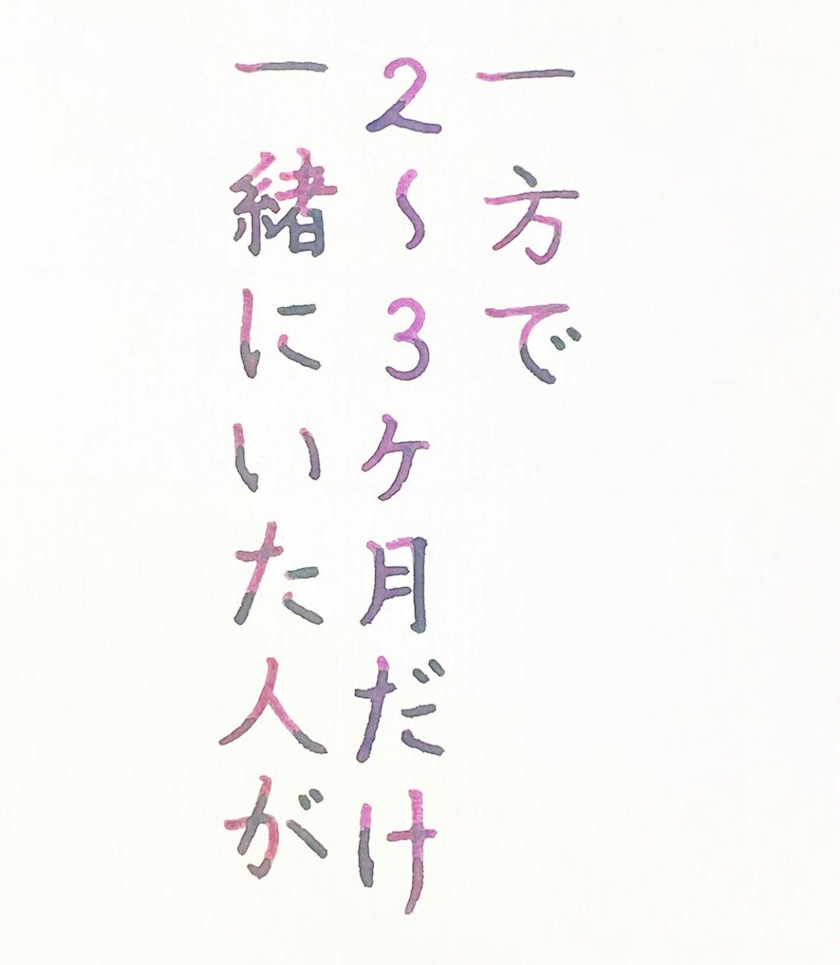 一方で
2〜3ケ月だけ
一緒にいた人が